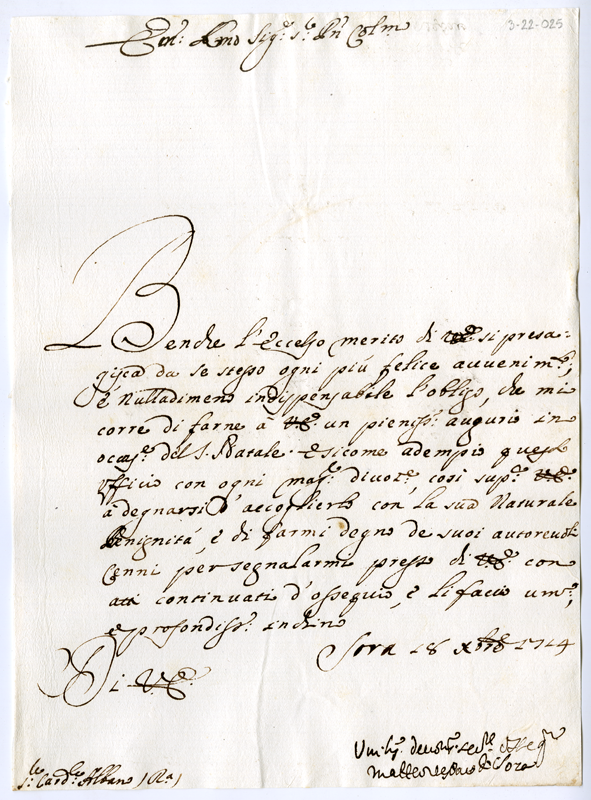 3-22-025
Em: Rmo Sig:e S:re Pñ Col:mo
Benche l'Eccelso merito di V.E. si presa=
gisca da se stesso ogni più felice auvenim:to,
è nulladimeno indispensabile l'obligo, che mi
corre di farne à V.E. un pieniss:o augurio in
occas:e del S. Natale. E sicome adempio quest
Uffitio con ogni mag:r divot:e, così sup:co V.E.
à degnarsi d'accoglierlo con la sua Naturale
benignità, e di farmi degno de suoi autorevoli
Cenni per segnalarmi presso di V.E. con
atti continuati d'ossequio, e li faccio um:o,
e profondiss:o inchino
Sora 18 Xbre 1714
Di V.E.
Um:o devot:mo
Matteo Vescovo di Sora
S:r Card:le Albano (Ra)